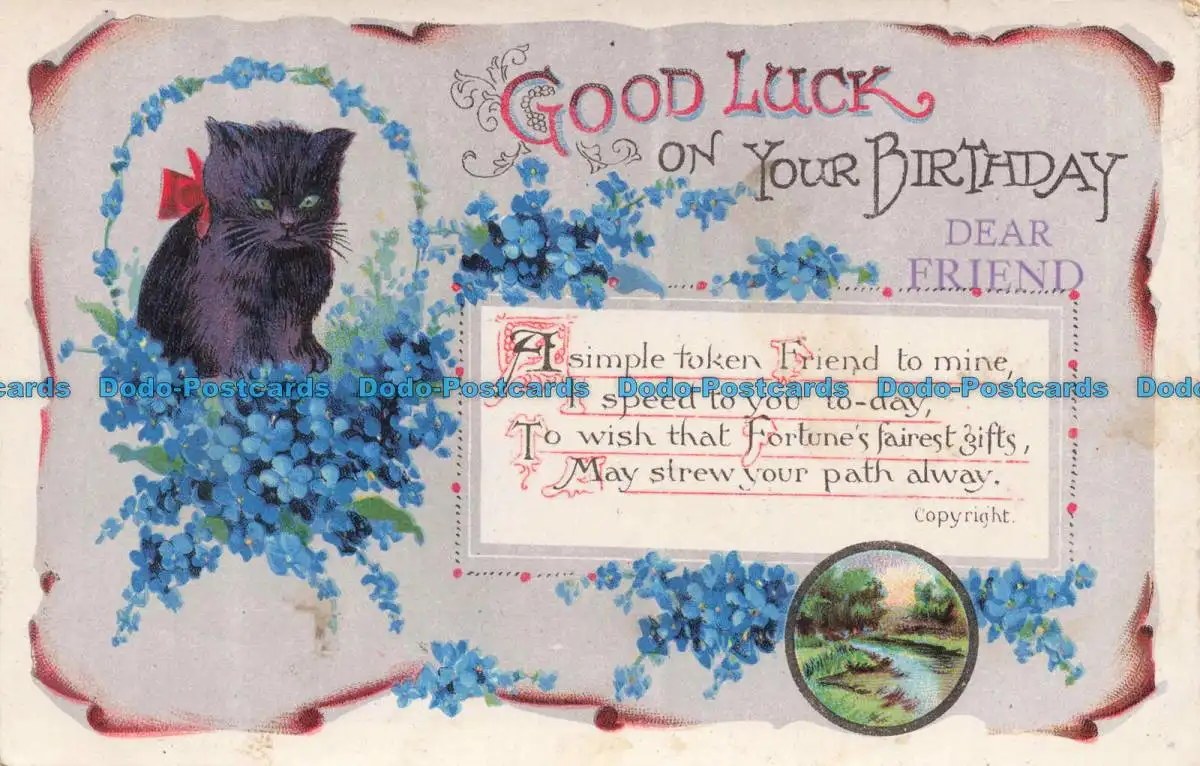 GOOD LUCK
ON YOUR BIRTHDAY
DEAR
FRIEND
A simple token Friend to mine,
I speed to you to-day,
To wish that Fortune's fairest gifts,
May strew your path alway.
Copyright.
Postcards Dodo-Postcards Dodo-Postcards Dodo-Postcards Dodo-Postcards Dodo-